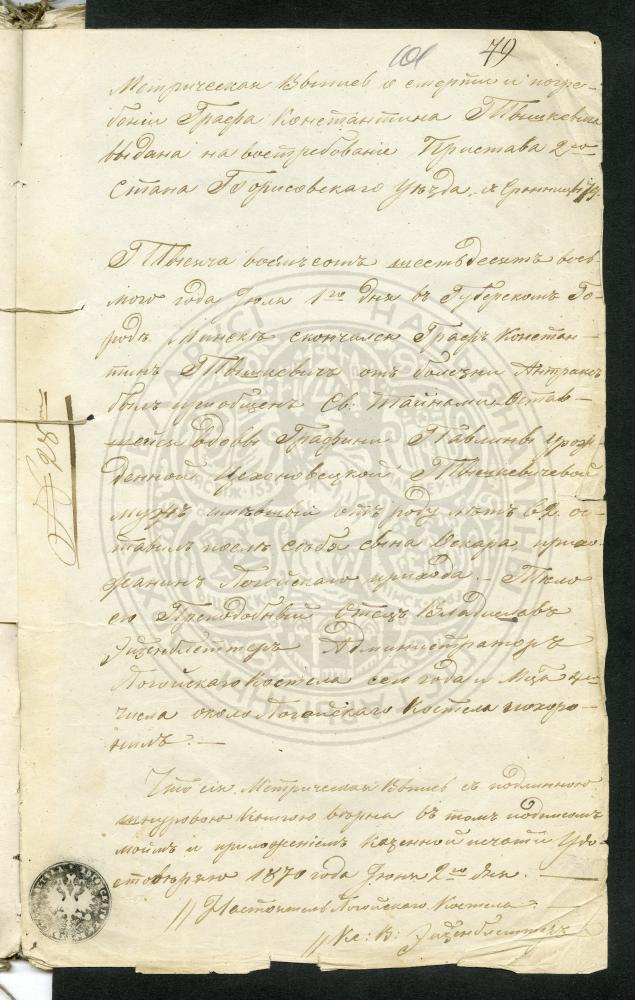 101 79
Метрическая Выпись о смерти и погре-
бении Графа Константина Тышкевича
выдана на востребованіе Пристава 2го
Стана Борисовскаго уѣзда
Тысяча восемьсотъ шестьдесятъ вось-
маго года Іюля 1го дня въ Губерскомъ Го-
родѣ Минскѣ скончался Графъ Констан-
тинъ Тышкевичъ отъ болезни Антраксъ
былъ приобщенъ Св. Тайнами. Остав-
шейся вдовы Графини Павлины урож-
денной Цехановецкой Тышкевичевой
мужъ имевшій отъ роду лѣтъ 62 ос-
тавилъ послѣ себя сына Оскара прихо-
жанинъ Логойскаго прихода. Тѣло
его Преподобный Отецъ Владиславъ
Эйзенблеттеръ Администраторъ
Логойскаго Костела сего года и Мца
числа около Логойскаго Костела похоро-
нилъ. —
Что сія Метрическая Выпись съ подлинною
шнуровою книгою вѣрна въ томъ подписомъ
моимъ и приложеніемъ казенной печати Удо-
стовѣряю 1870 года Іюня 2го дня. —
// Настоятель Логойскаго Костела
// Кс: В: Эйзенблеттеръ
№ 28